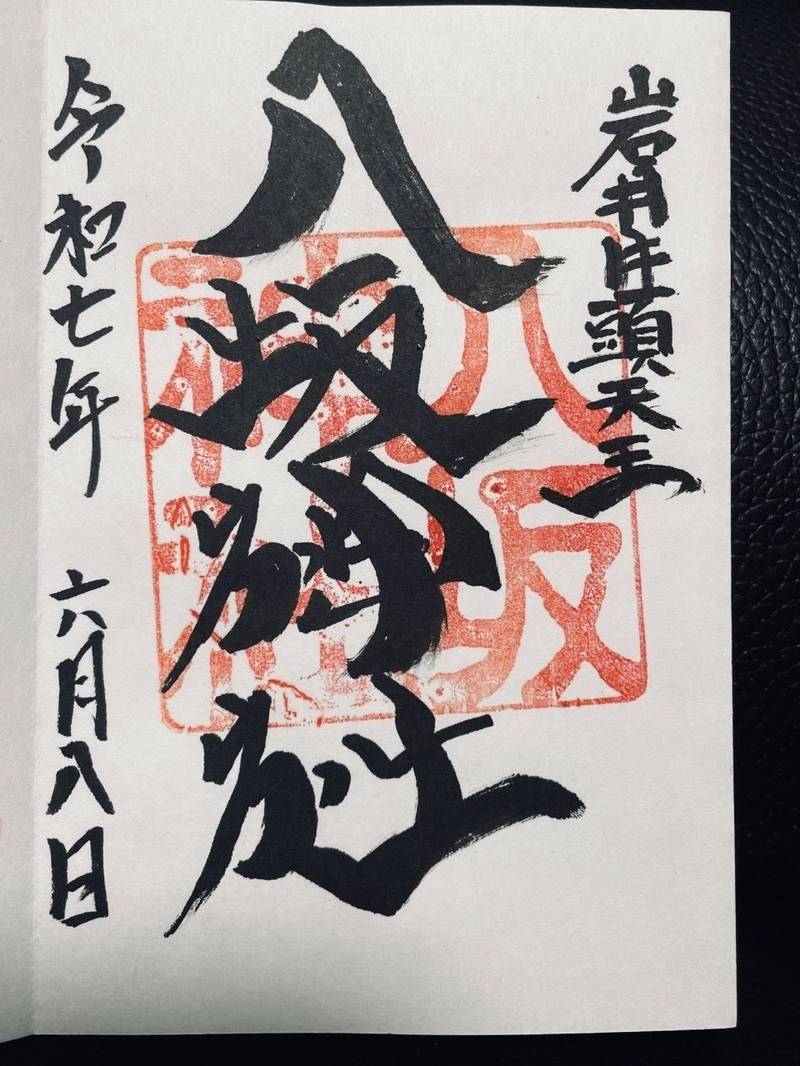 岩井牛頭天王
八坂神社
八坂
神社
令和七年 六月八日